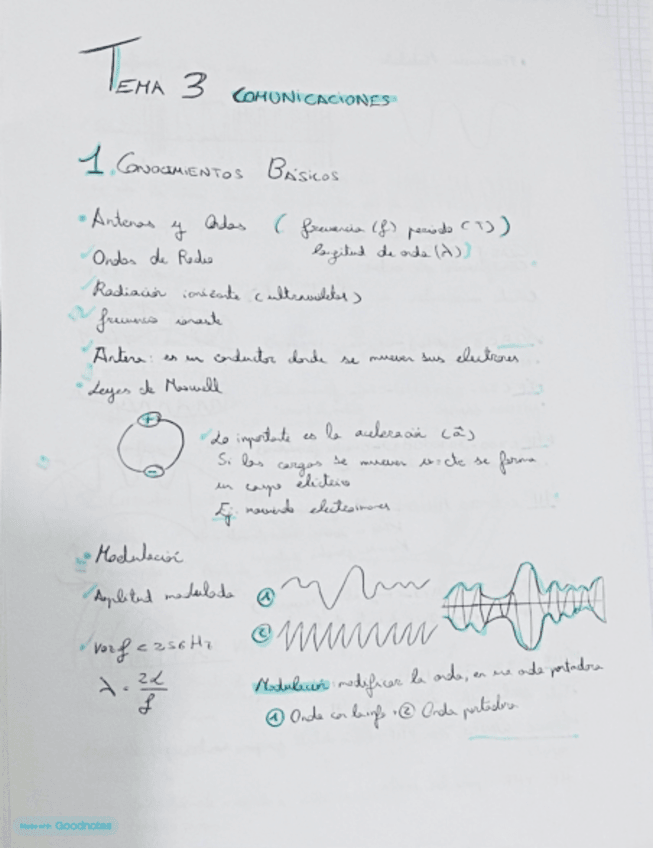 TEMA 3 COMUNICACIONES
1. CONOCIMIENTOS BÁSICOS
Antenas y Ondas ( frecuencia (f) periodo (T) )
longitud de onda (λ)
Ondas de Radio
Radiación ionizante (ultravioletas)
frecuencia
Antena: es un conductor donde se mueven sus electrones
Leyes de Maxwell
+
-
Lo importante es la aceleración (a⃗)
Si las cargas se mueven v=cte se forma
un campo eléctrico
Ej: moviendo
Modulación
Amplitud modulada
1
2
Voz f < 256 Hz
λ = / f
Modulación: modificar la onda, en una onda portadora
1 Onda con la info + 2 Onda portadora
Made with Goodnotes